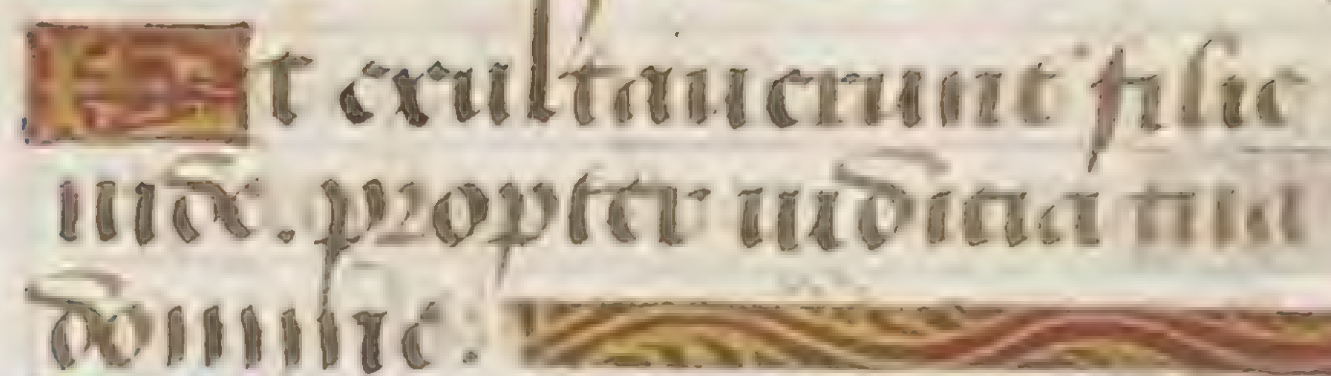 Et exultauerunt filie
iude. propter iudicia tua
domine: